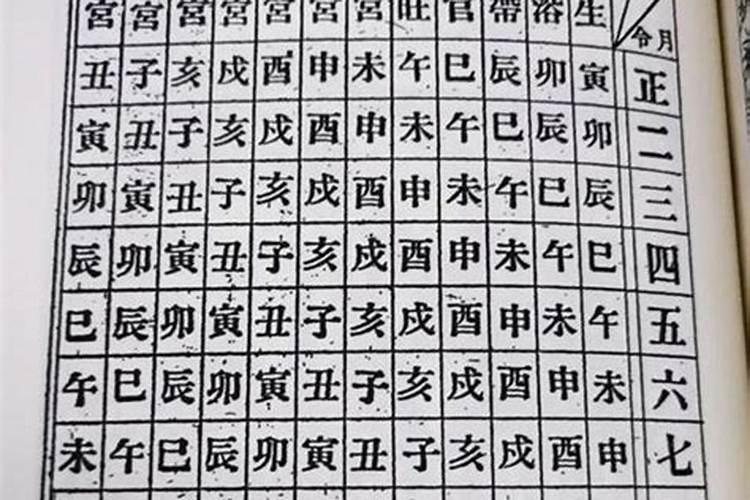 月令 生 浴 帶 官 旺 宮 宮 宮 宮 宮 宮 宮
正 寅 卯 辰 巳 午 未 申 酉 戌 亥 子 丑
二 卯 辰 巳 午 未 申 酉 戌 亥 子 丑 寅
三 辰 巳 午 未 申 酉 戌 亥 子 丑 寅 卯
四 巳 午 未 申 酉 戌 亥 子 丑 寅 卯 辰
五 午 未 申 酉 戌 亥 子 丑 寅 卯 辰 巳
六 未 申 酉 戌 亥 子 丑 寅 卯 辰 巳 午
七 申 酉 戌 亥 子 丑 寅 卯 辰 巳 午 未